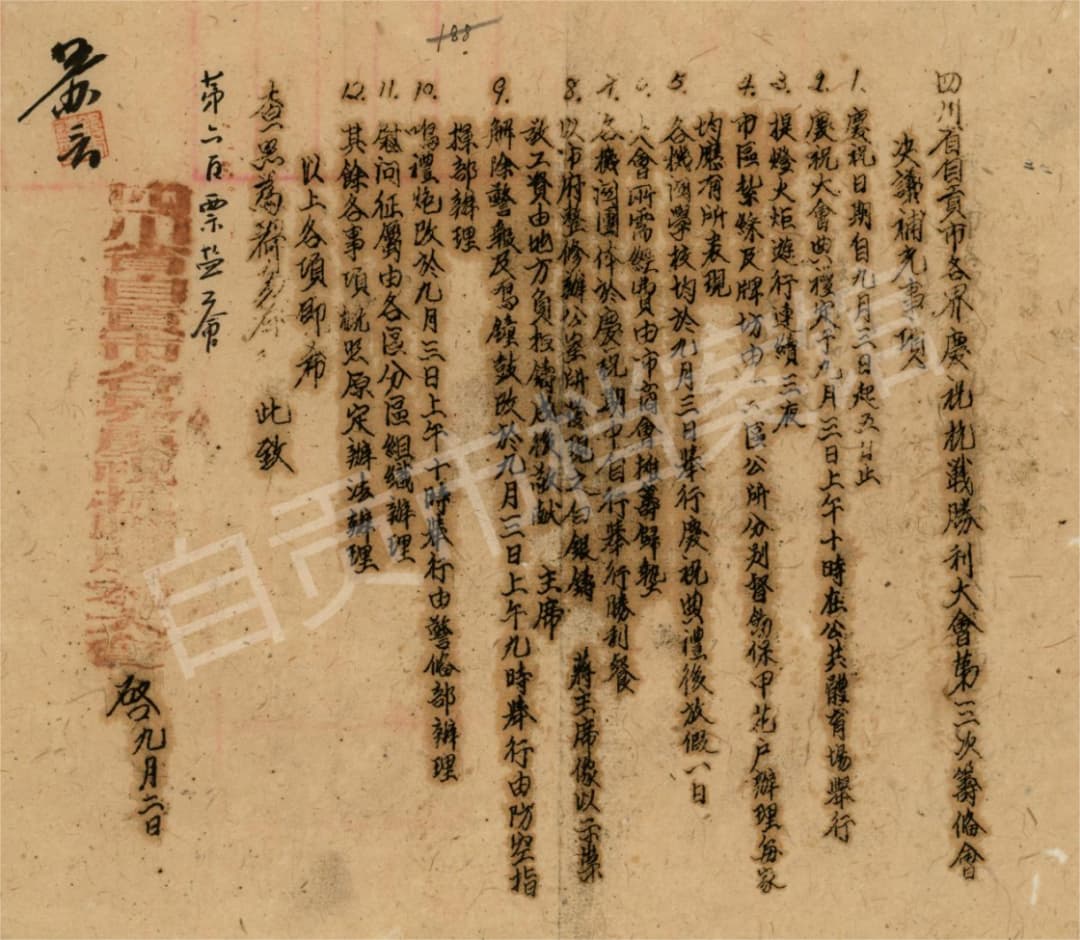 188
四川省自貢市各界慶祝抗戰勝利大會第三次籌備會
決議補充事項
1. 慶祝日期自九月三日起五日止
2. 慶祝大會典禮定于九月三日上午十時在公共體育場舉行
3. 提燈火炬遊行連續三夜
4. 市區紮綵及牌坊由一二區公所分别督飭保甲花戶辦理每家
均應有所表現
5. 各機関學校均於九月三日舉行慶祝典禮後放假八日
6. 大會所需經費由市商會攤籌歸墊
7. 各機関團体於慶祝期中自行舉行勝利餐
8. 以市府整修辦公室時發現之白銀鑄 蔣主席像以示崇
敬工資由地方負担鑄成後敬献 主席
9. 解除警報及鳴鐘鼓改於九月三日上午九時舉行由防空指
揮部辦理
10. 鳴禮炮改於九月三日上午十時舉行由警備部辦理
11. 慰问征屬由各區分區組織辦理
12. 其餘各事項統照原定辦法辦理
以上各項即希
查照為荷 此致
第六百票盐公會
四川省自貢市各界慶祝抗 啓九月二日
自贡市档案馆